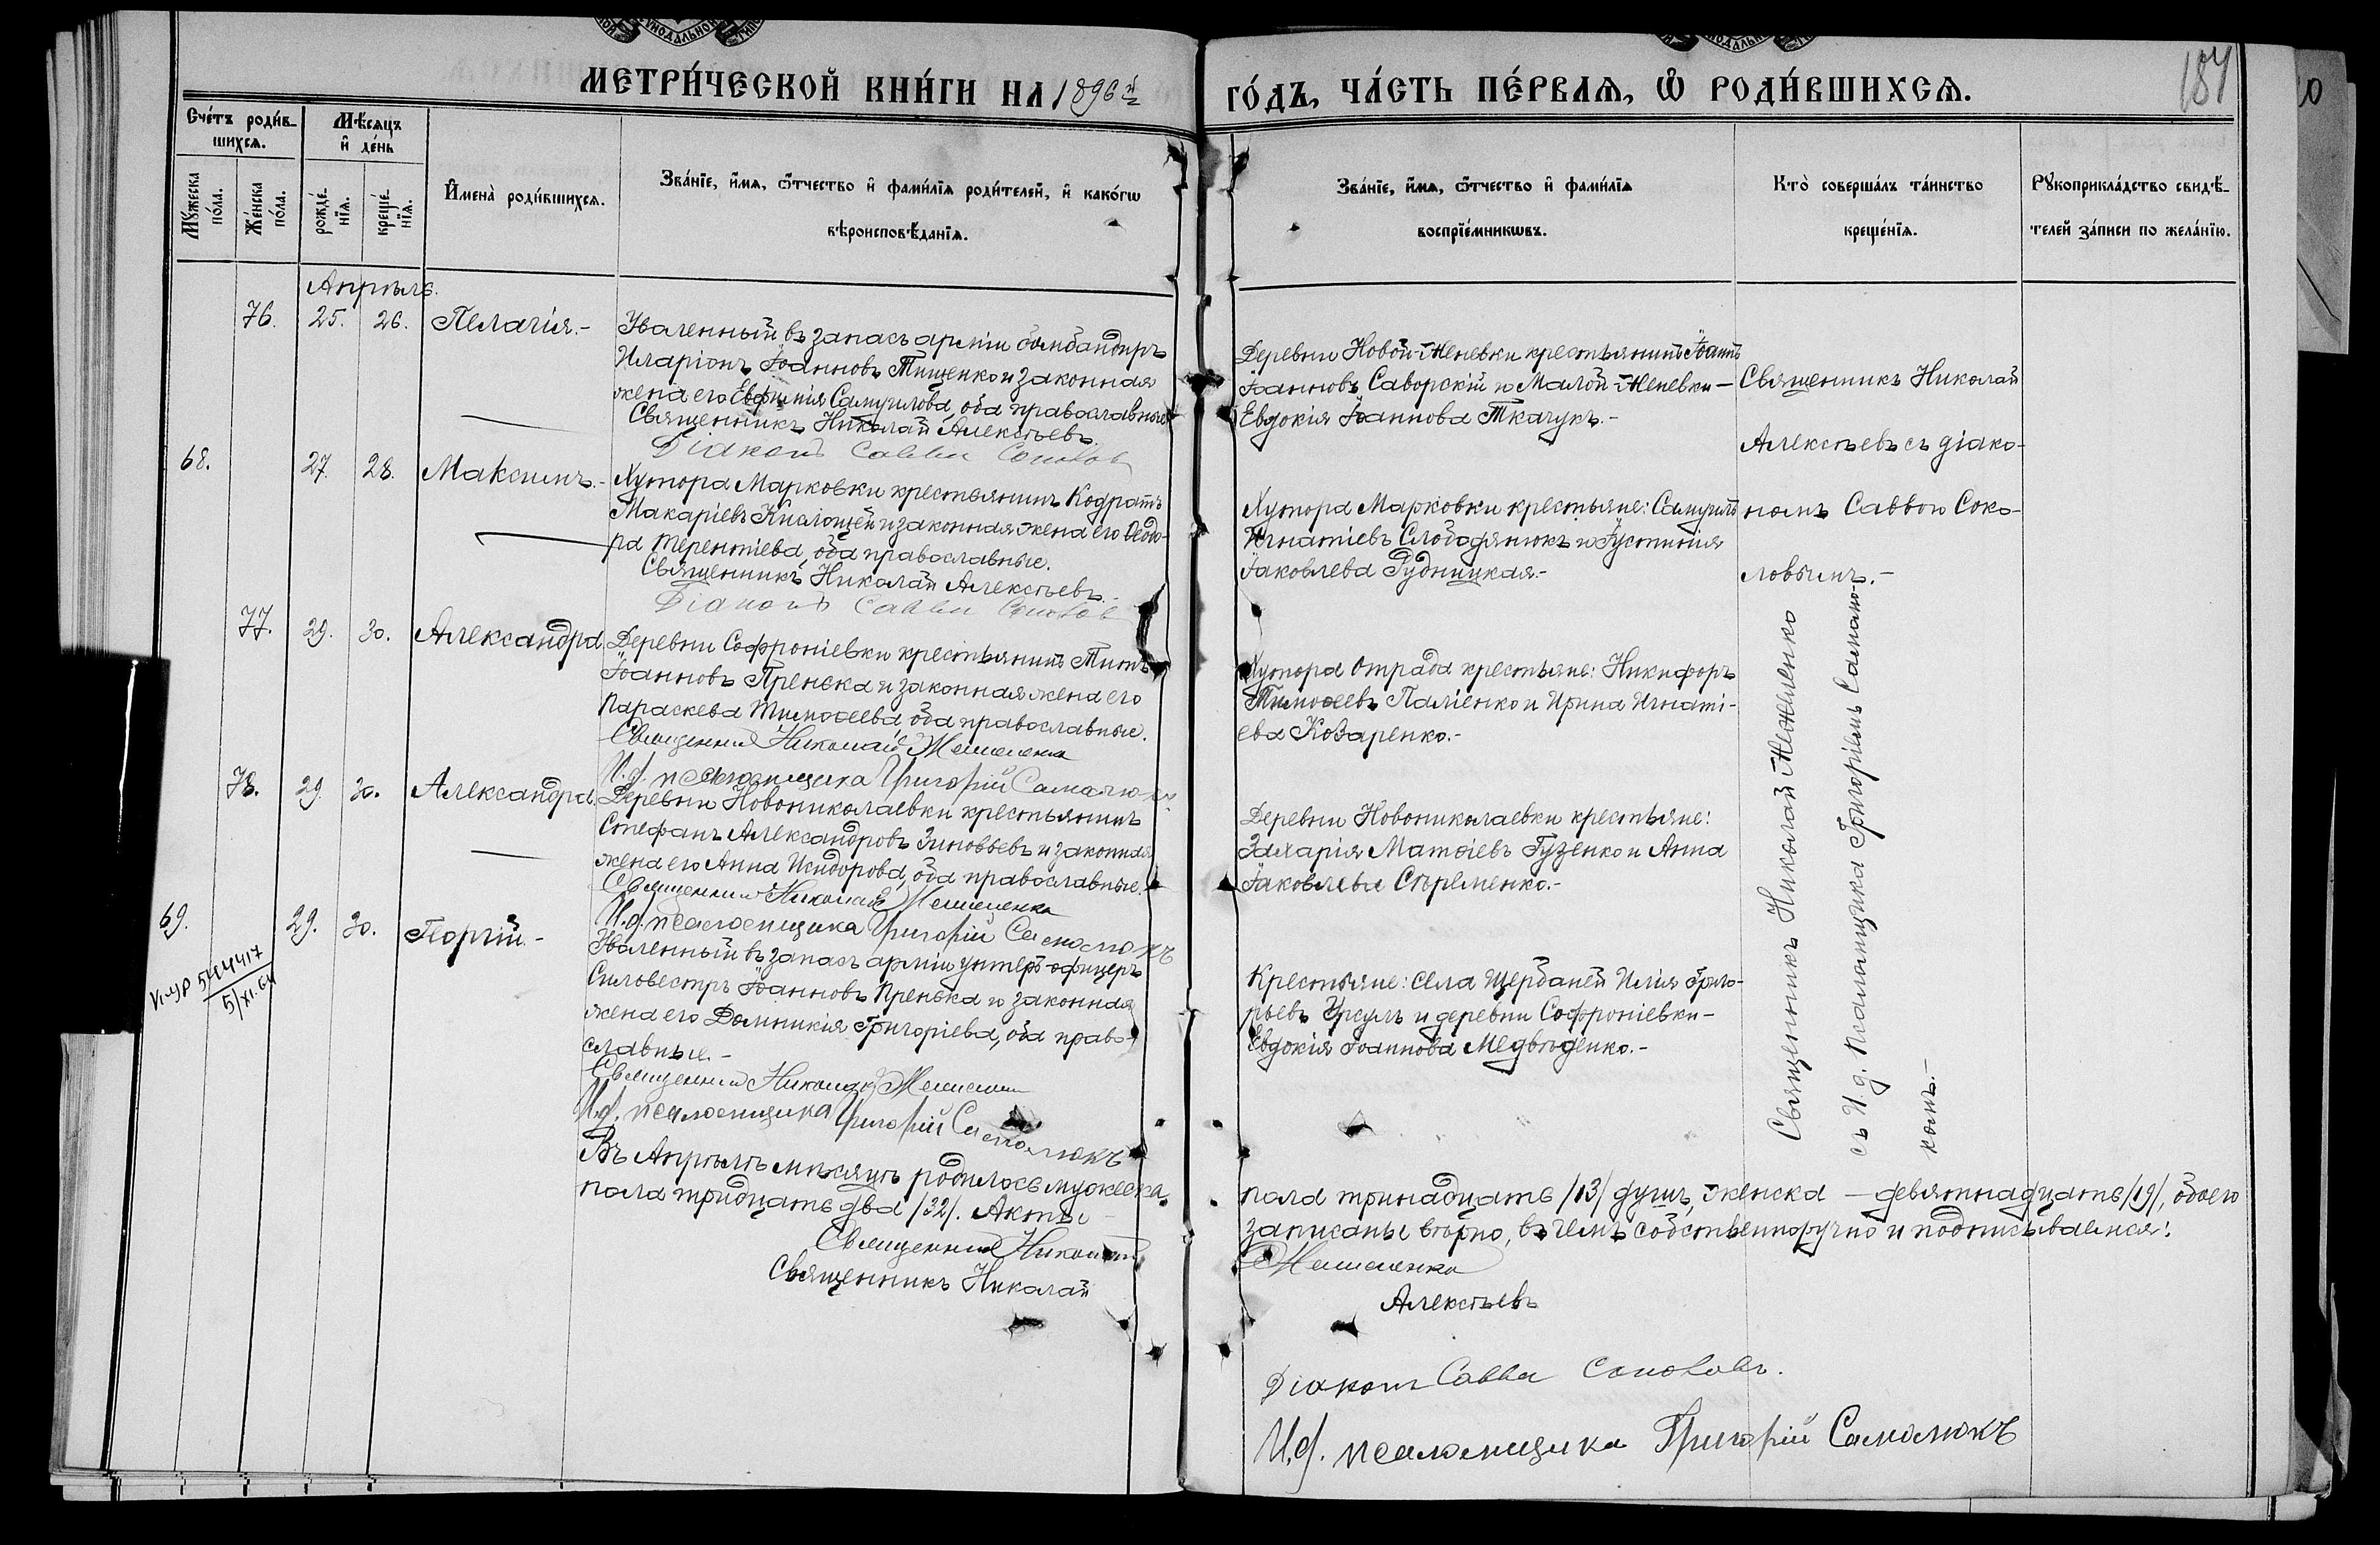 МЕТРИ́ЧЕСКОЙ КНИ́ГИ НА 1896й
ГО́ДЪ, ЧА́СТЬ ПЕ́РВАЯ, Ѿ РОДИ́ВШИХСЯ.
187
Сче́тъ роди́в-
шихся.
Мѣ́сяцъ
и҆ де́нь
Му́жеска
по́ла.
Же́нска
по́ла.
рожде́-
нїя.
креще́-
нїя.
И҆мена̀ роди́вшихся.
Зва́нїе, и҆́мя, ѻ҆́тчество и҆ фами́лїя роди́телей, и҆ како́гѡ
вѣроисповѣ́данїя.
Зва́нїе, и҆́мя, ѻ҆́тчество и҆ фами́лїя
воспрїе́мникѡвъ.
Кто̀ соверша́лъ та́инство
креще́нїя.
Рукоприкла́дство свидѣ́-
телей за́писи по жела́нїю.
Апрѣль.
76. 25. 26. Пелагія.-
Уволенный въ запасъ арміи бомбандиръ
Иларіонъ Іоанновъ Тищенко и законная
жена его Евфимія Самуилова, оба православные
Священникъ Николай Алексѣевъ.
Діаконъ Савва Соколовъ
Деревни Новой-Женевки крестьянинъ Іоаннъ
Іоанновъ Саворскій и Малой-Женевки-
Евдокія Іоаннова Ткачукъ.-
Священникъ Николай
Алексѣевъ съ діако-
номъ Саввою Соко-
ловымъ.-
68. 27. 28. Максимъ.-
Хутора Марковки крестьянинъ Кодратъ
Макаріевъ Кислощей и законная жена его Ѳедо-
ра Терентіева, оба православные.
Священникъ Николай Алексѣевъ.
Діаконъ Савва Соколовъ
Хутора Марковки крестьяне: Самуилъ
Игнатіевъ Слободянюкъ и Іустинія
Іаковлева Рудницкая.-
77. 29. 30. Александра
Деревни Софроніевки крестьянинъ Титъ
Іоанновъ Пренька и законная жена его
Параскева Тимоѳеева, оба православные.
Священникъ Николай Желиленко
И.д. псаломщика Григорій Самолюкъ
Хутора Отрада крестьяне: Никифоръ
Тимоѳеевъ Паліенко и Ирина Игнаті-
ева Козаренко.-
Священникъ Николай
съ И.д. Псаломщика Григоріемъ Самолю-
комъ.-
78. 29. 30. Александра
Деревни Новониколаевки крестьянинъ
Стефанъ Александровъ Зиновьевъ и законная
жена его Анна Исидорова, оба православные.
Священникъ Николай
И.д. псаломщика Григорій Самолюкъ
Деревни Новониколаевки крестьяне:
Захарія Матѳіевъ Гузенко и Анна
Іаковлева Сѣременко.-
69. 29. 30. Георгій.-
5/XI.64
Уволенный въ запасъ арміи унтеръ-офицеръ
Силовестръ Іоанновъ Пренька и законная
жена его Домникія Григоріева, оба право-
славные.-
Священникъ Николай
И.д. псаломщика Григорій Самолюкъ
Крестьяне: села Щербаней Илія Григо-
рьевъ Урсулъ и деревни Софроніевки-
Евдокія Іоаннова Медвѣденко.-
Въ Апрѣлѣ мѣсяцѣ родилось мужеска
пола тринадцать /13/ душъ, женска - девятнадцать /19/, обоего
пола тридцать два /32/. Акты
записаны вѣрно, въ чемъ собственноручно и подписываемся:
Священникъ Николай
Священникъ Николай Алексѣевъ
Діаконъ Савва Соколовъ.
И.д. псаломщика Григорій Самолюкъ